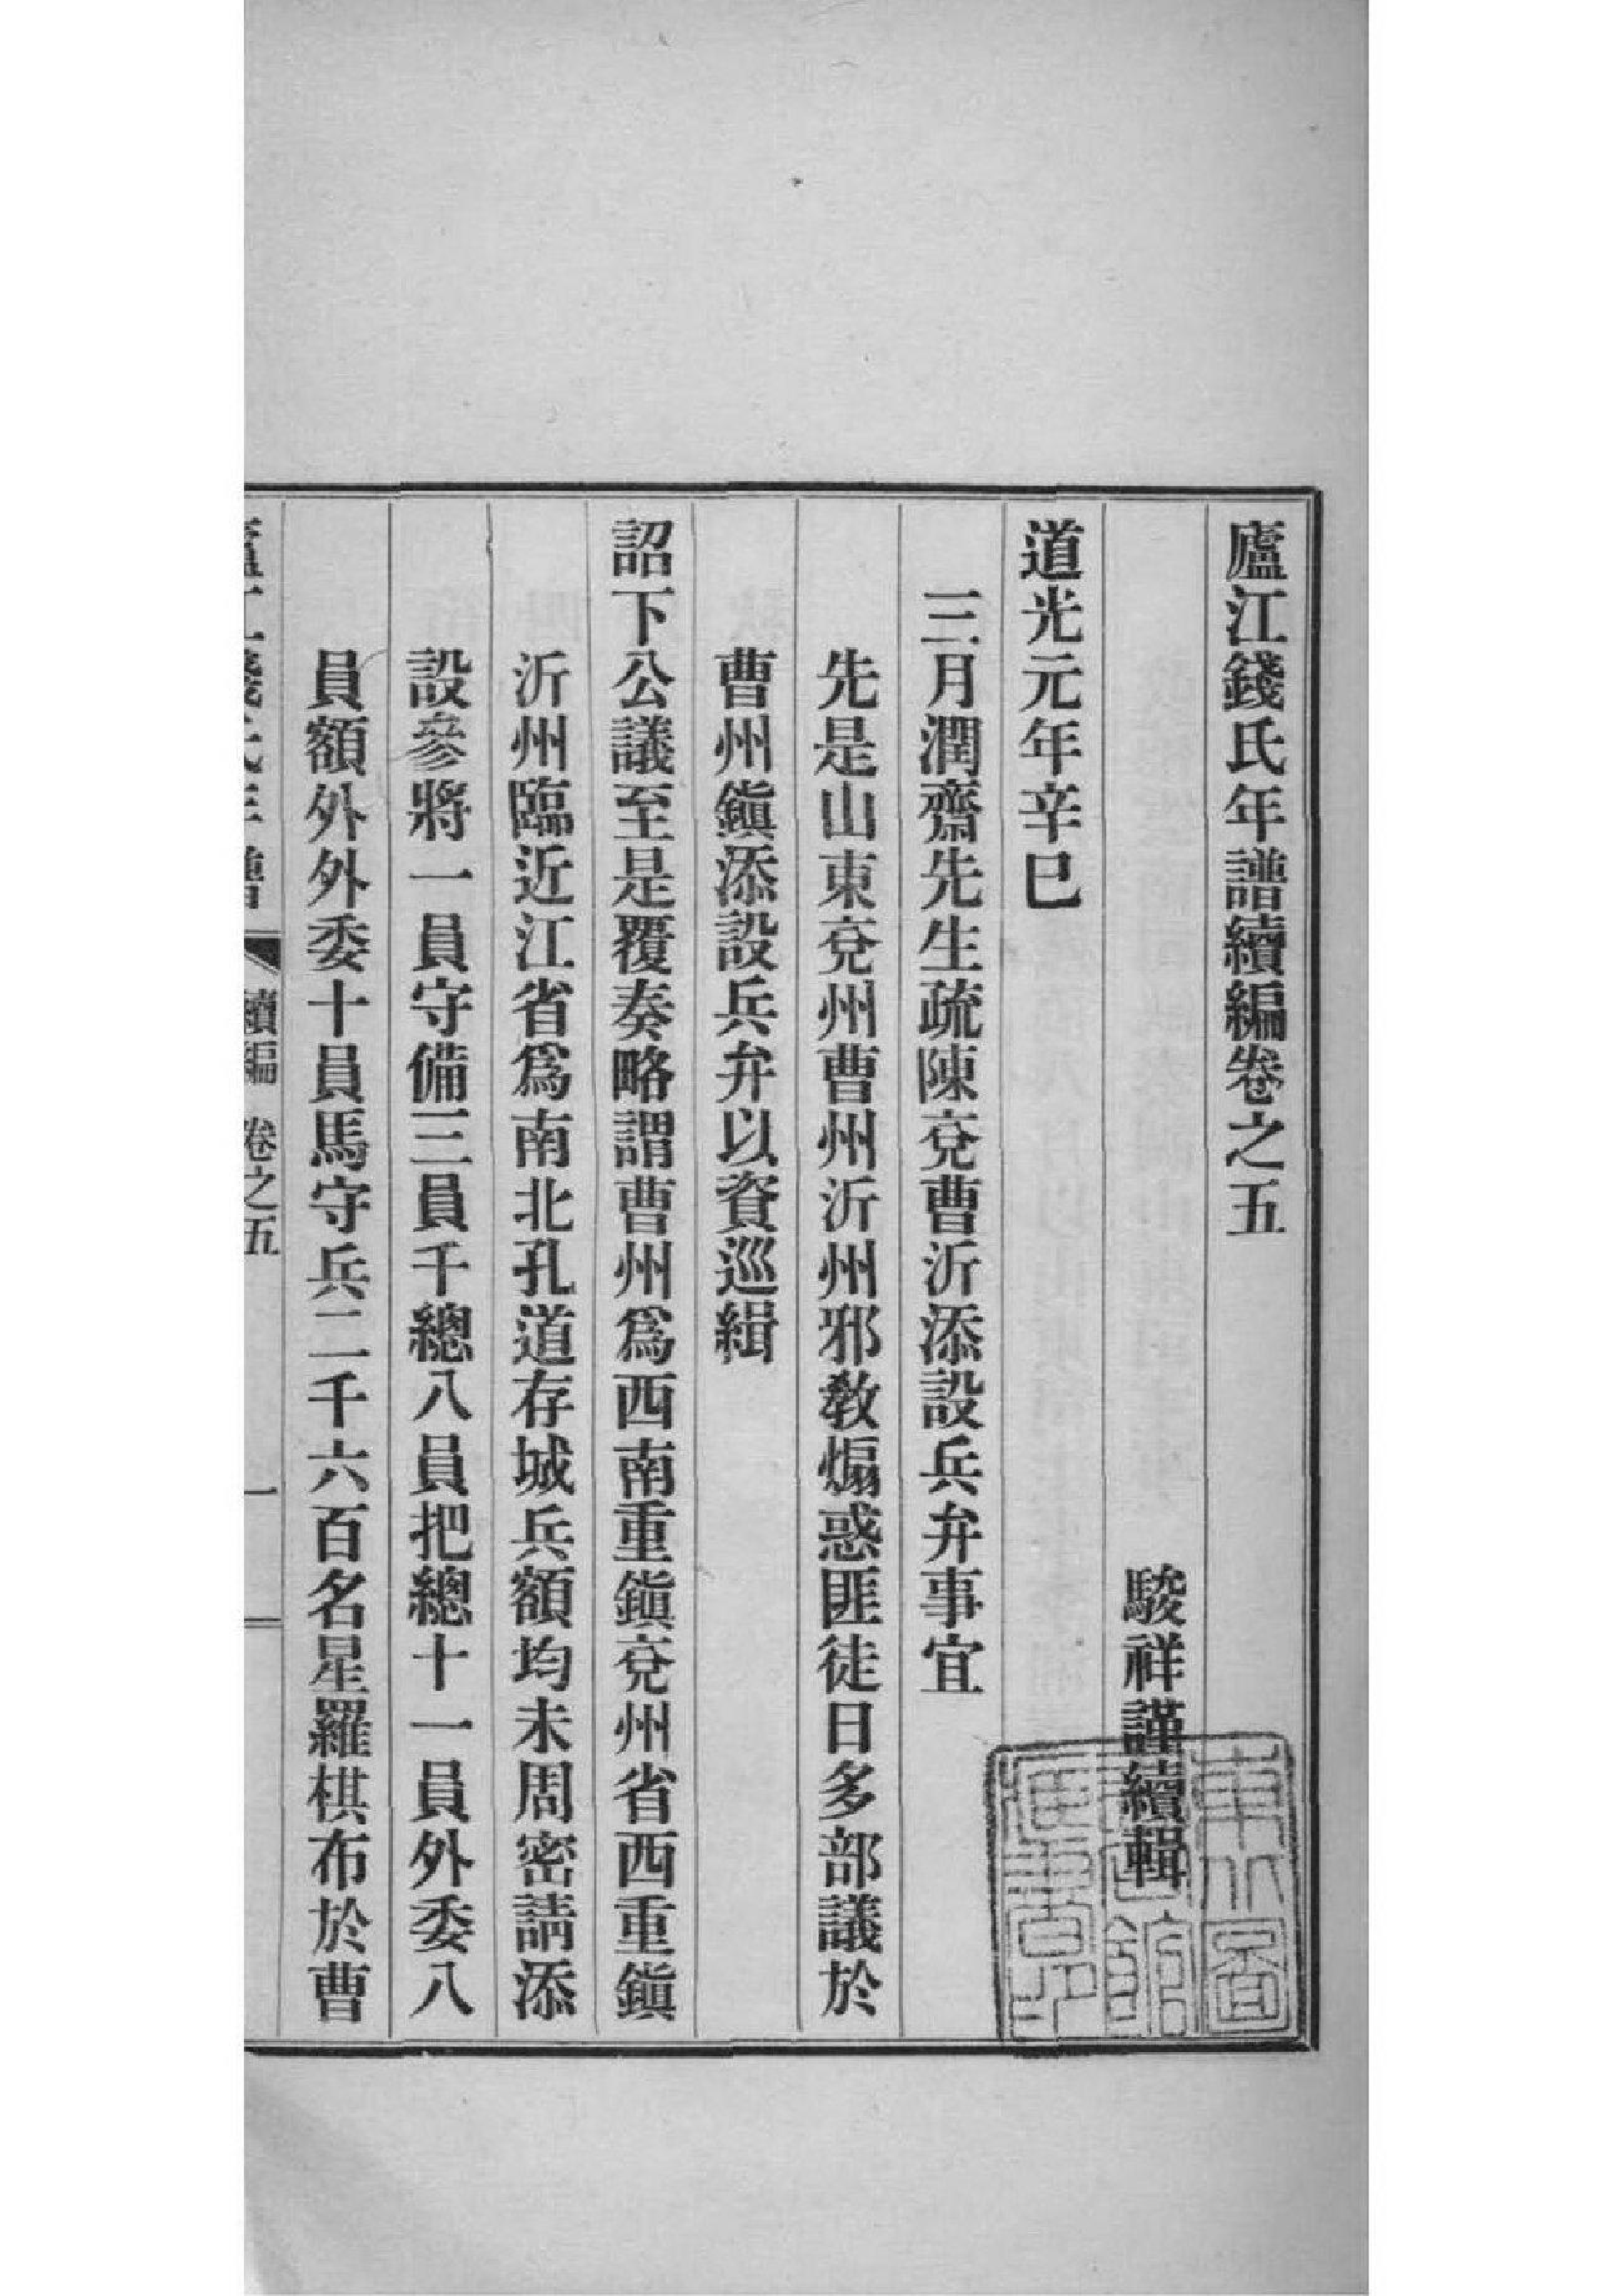 廬江錢氏年譜續編卷之五
駿祥謹續輯
道光元年辛巳
三月潤齋先生疏陳兗曹沂添設兵弁事宜
先是山東兗州曹州沂州邪教煽惑匪徒日多部議於
曹州鎭添設兵弁以資巡緝
詔下公議至是覆奏略謂曹州爲西南重鎭兗州省西重鎭
沂州臨近江省爲南北孔道存城兵額均未周密請添
設參將一員守備三員千總八員把總十一員外委八
員額外外委十員馬守兵二千六百名星羅棋布於曹
廬江錢氏年譜 續編 卷之五 一